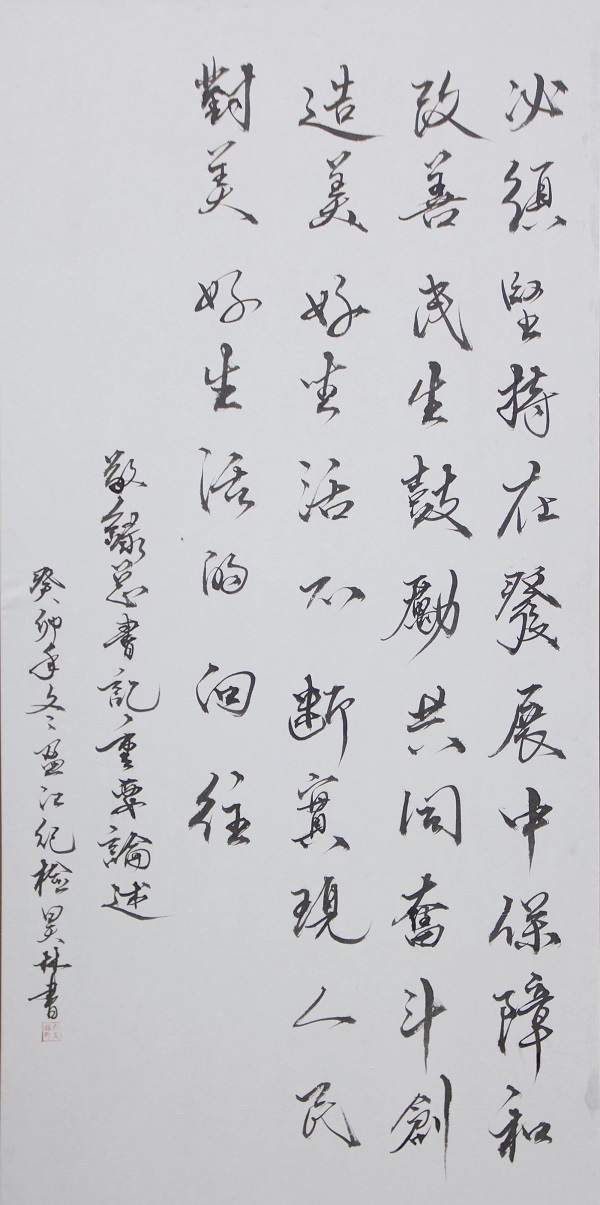 必須堅持在發展中保障和
改善民生鼓勵共同奮斗創
造美好生活不断實現人民
對美好生活的向往
敬錄总書記重要論述
癸卯年冬盈江纪檢昊林書